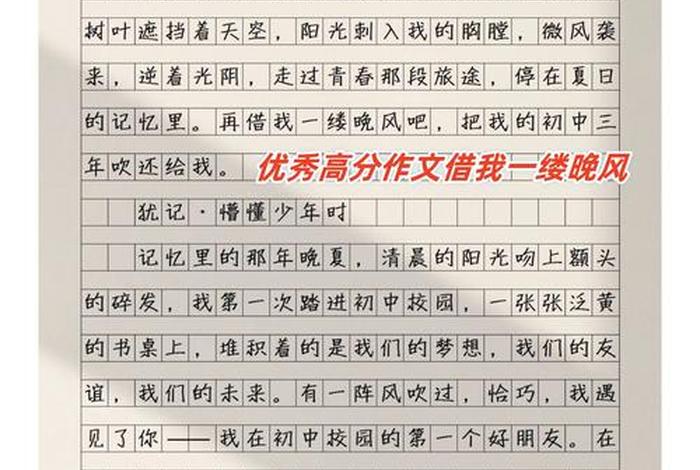 树叶遮挡着天空，阳光刺入我的胸膛，微风袭
来，逆着光阴，走过青春那段旅途，停在夏日
的记忆里。再借我一缕晚风吧，把我的初中三
年吹还给我。
优秀高分作文借我一缕晚风
犹记·懵懂少年时
记忆里的那年晚夏，清晨的阳光吻上额头
的碎发，我第一次踏进初中校园，一张张泛黄
的书桌上，堆积着的是我们的梦想，我们的友
谊，我们的未来。有一阵风吹过，恰巧，我遇
见了你——我在初中校园的第一个好朋友。在